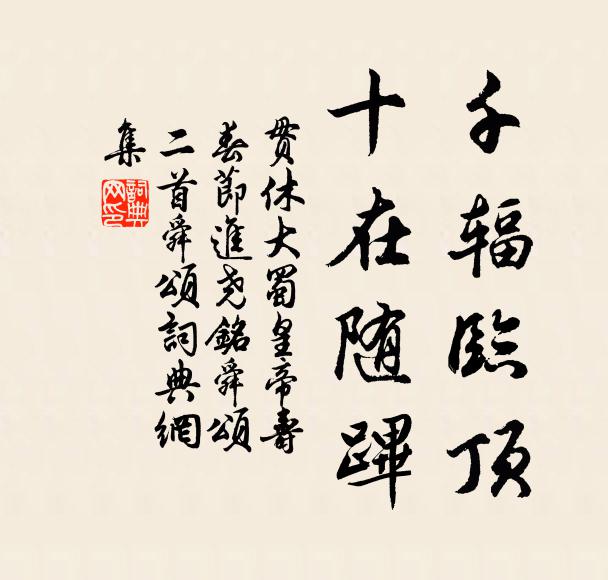 千辐臨顶
十在随蹕
貫休大蜀皇帝壽
春節進堯銘舜頌
二首舜頌詞典網
集
詞典网印